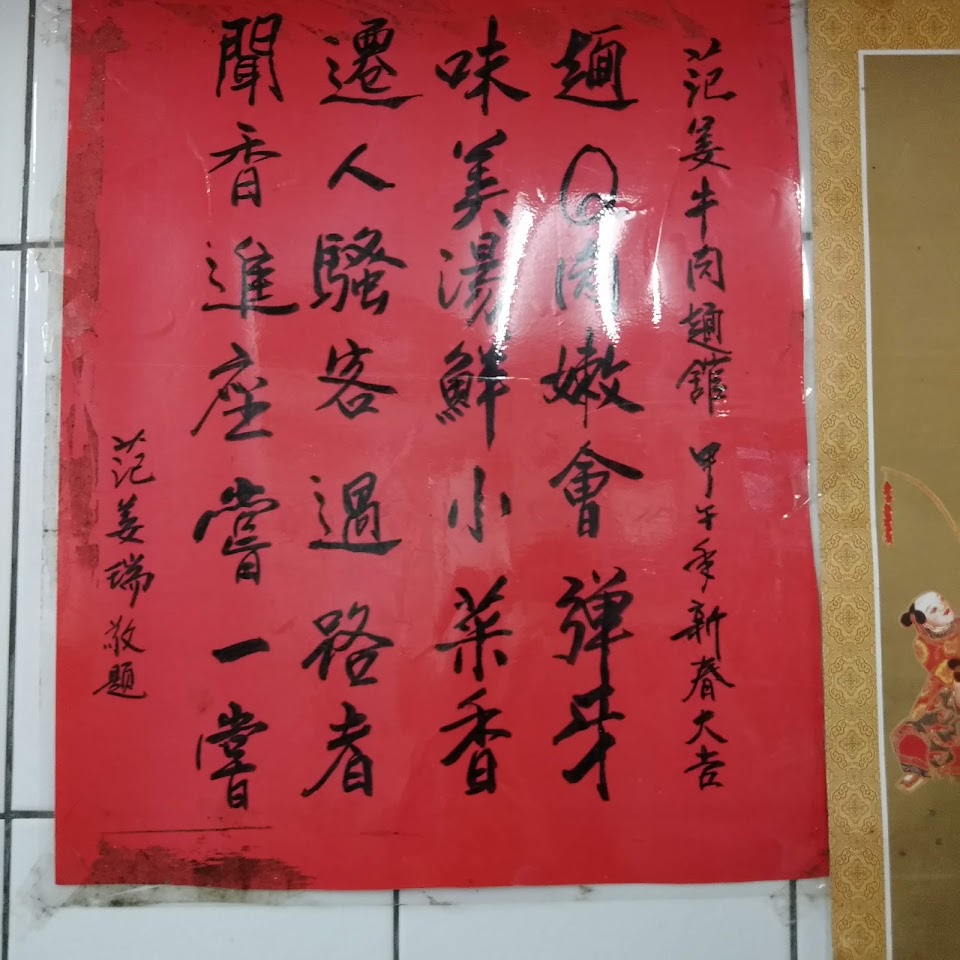 范姜牛肉麵館 甲午年新春大吉
麵Q肉嫩會彈牙
味美湯鮮小菜香
遷人騷客過路者
聞香進座嘗一嘗
范姜瑞敬題